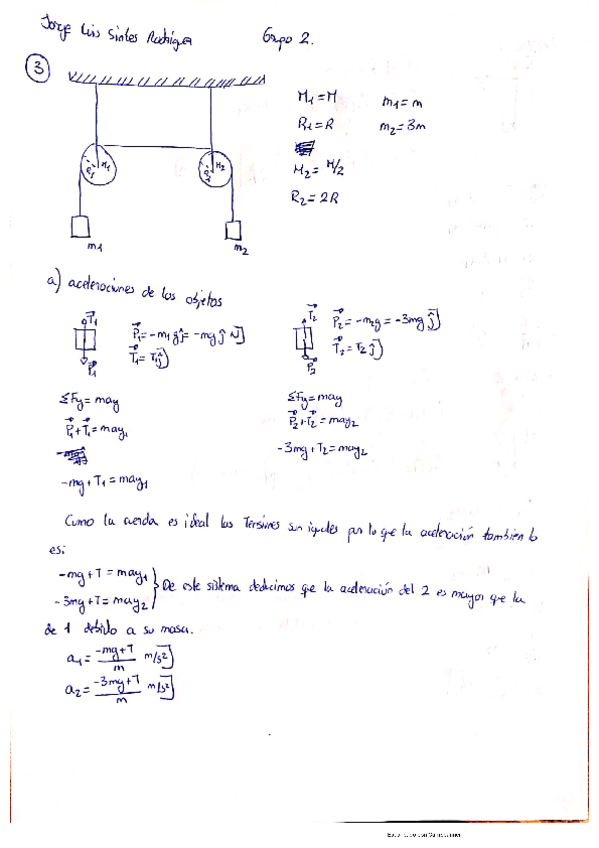 Jorge Luis Sintes Rodríguez Grupo 2.
3
M1 = M m1 = m
R1 = R m2 = 3m
M2 = M/2
R2 = 2R
R1 M1 R2 M2
m1 m2
a) aceleraciones de los objetos
T1 P1 = -m1 g ĵ = -mg ĵ N] T2 P2 = -m2g = -3mg ĵ]
P1 T1 = T1 ĵ] P2 T2 = T2 ĵ]
ΣFy = may ΣFy = may
P1 + T1 = may1 P2 + T2 = may2
-3mg + T2 = may2
-mg + T1 = may1
Como la cuerda es ideal las Tensiones son iguales por lo que la aceleración también lo
es:
-mg + T = may1
-3mg + T = may2 } De este sistema deducimos que la aceleración del 2 es mayor que la
de 1 debido a su masa.
a1 = -mg+T/m m/s²]
a2 = -3mg+T/m m/s²]